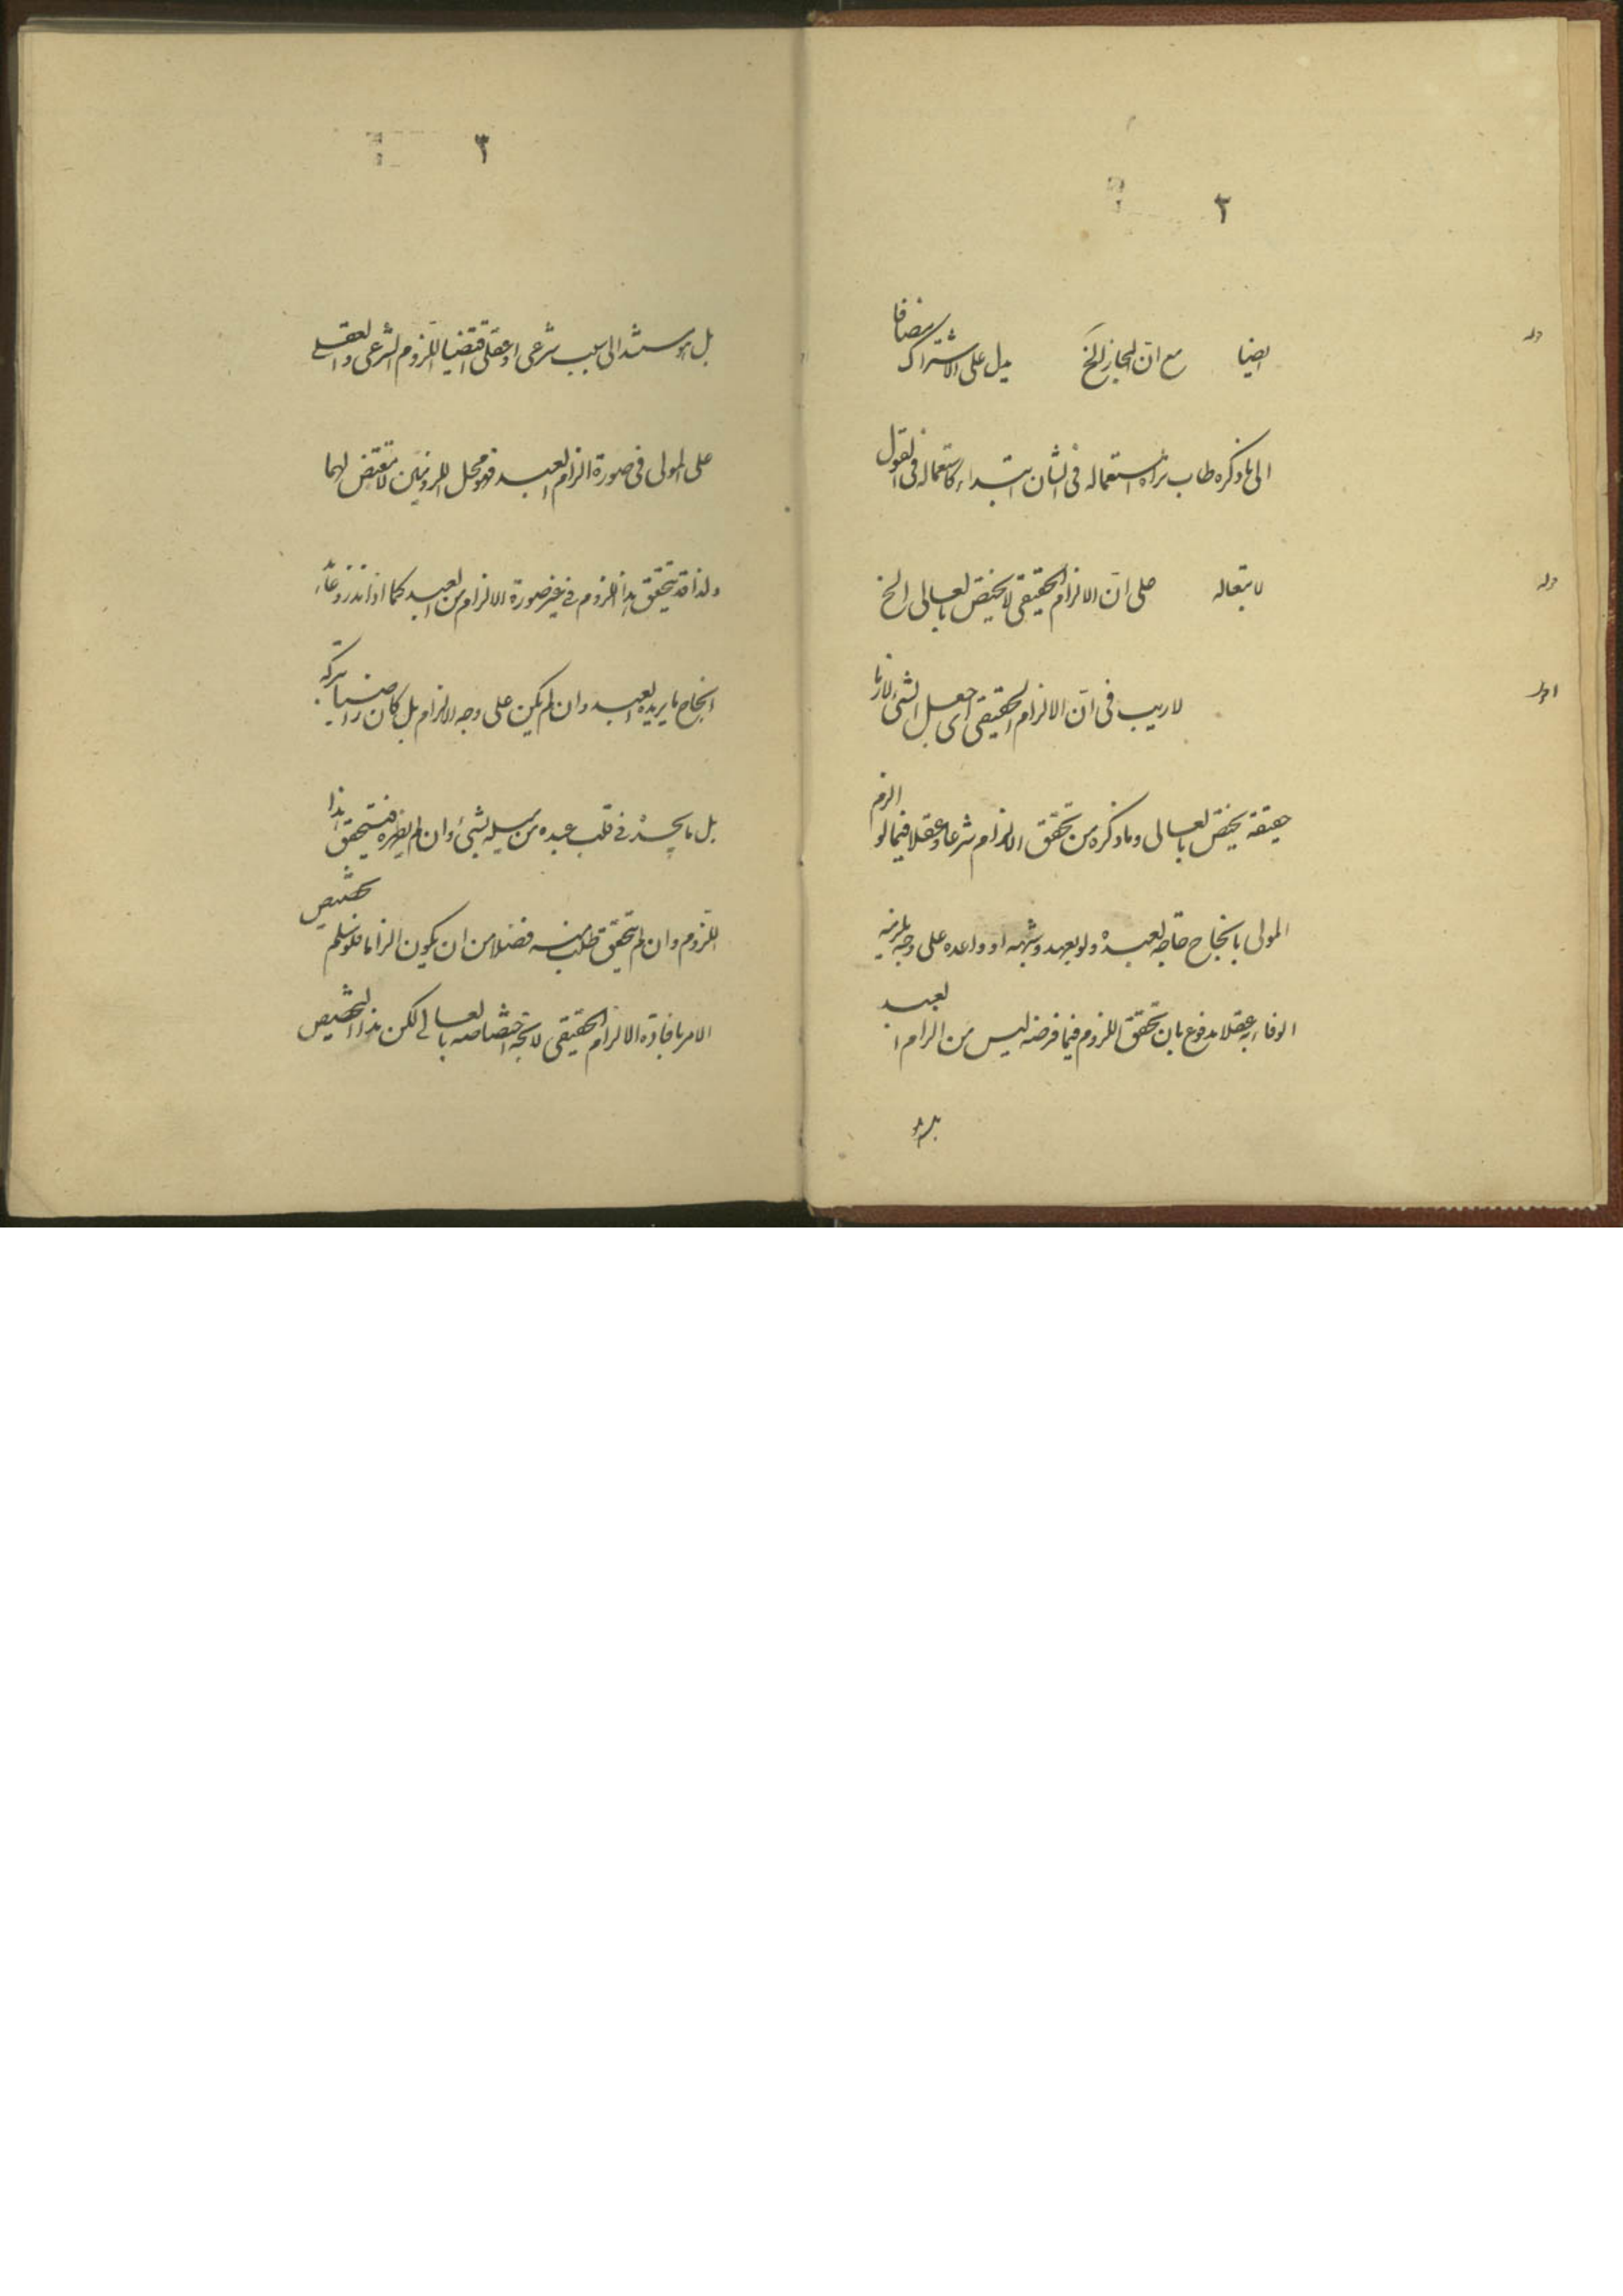 ٢
قوله
ايضا مع ان المجاز الخ يدل على الاشتراك مضافا
الى ما ذكره طاب ثراه استعماله في الشأن ابتداء كاستعماله في القول
قوله
لا يقاله على انّ الالزام الحقيقى لا يختص بالعالى الخ
اقول
لا ريب فى انّ الالزام الحقيقى اى جعل الشئ لازما
حقيقة يختص بالعالى وما ذكره من تحقّق الالزام شرعا وعقلا فيما لو الزم
المولى بانجاح حاجة العبد ولو بعهد وشبهه او واعده على وجه يلزمه
الوفاء به عقلا مدفوع بان تحقق اللزوم فيما فرضه ليس من الزام العبد
بل هو
٣
بل هو مستند الى سبب شرعى او عقلى اقتضيا اللزوم الشرعى والعقلى
على المولى فى صورة الزام العبد فهو محل للزومين لا مقتض لهما
ولذا قد يتحقق هذا اللزوم فى غير صورة الالزام من العبد كما اذا نذر
انجاح ما يريده العبد وان لم يكن على وجه الالزام بل كان راضيا بتركه
بل ما يجده فى قلب عبده من ميله بشئ وان لم يظهره فيتحقق هذا
اللزوم وان لم يتحقق طلب منه فضلا من ان يكون الزاما فلو سلم تخصيص
الامر بافادة الالزام الحقيقى لاتجه اختصاصه بالعالى لكن هذا التخصيص